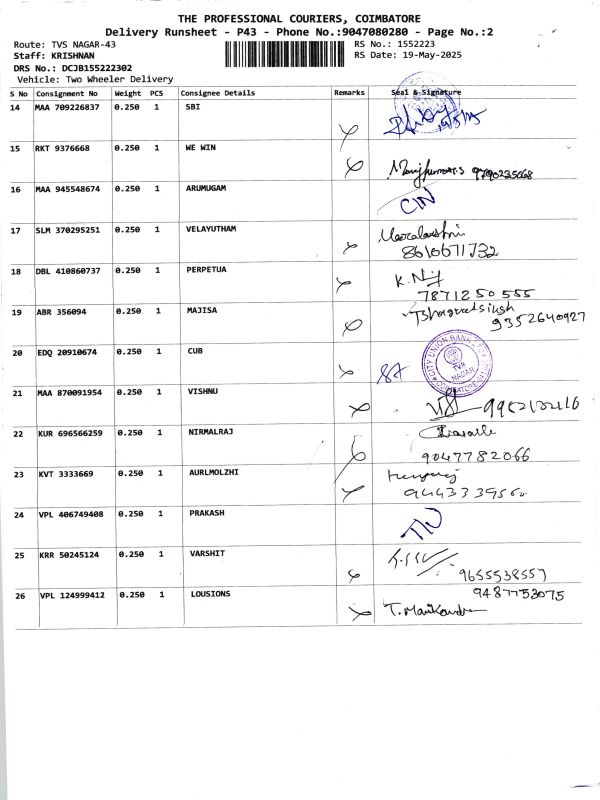 THE PROFESSIONAL COURIERS, COIMBATORE
Delivery Runsheet - P43 - Phone No.:9047080280 - Page No.:2
Route: TVS NAGAR-43 RS No.: 1552223
Staff: KRISHNAN RS Date: 19-May-2025
DRS No.: DCJB155222302
Vehicle: Two Wheeler Delivery
S No Consignment No Weight PCS Consignee Details Remarks Seal & Signature
14 MAA 709226837 0.250 1 SBI
15 RKT 9376668 0.250 1 WE WIN
16 MAA 945548674 0.250 1 ARUMUGAM CIN
17 SLM 370295251 0.250 1 VELAYUTHAM
8610671732
18 DBL 410860737 0.250 1 PERPETUA
7871250555
19 ABR 356094 0.250 1 MAJISA
9352640927
20 EDQ 20910674 0.250 1 CUB CITY UNION BANK TVS NAGAR
21 MAA 870091954 0.250 1 VISHNU
22 KUR 696566259 0.250 1 NIRMALRAJ
9047782066
23 KVT 3333669 0.250 1 AURLMOLZHI
24 VPL 406749408 0.250 1 PRAKASH
25 KRR 50245124 0.250 1 VARSHIT
9655538557
26 VPL 124999412 0.250 1 LOUSIONS 9487753075